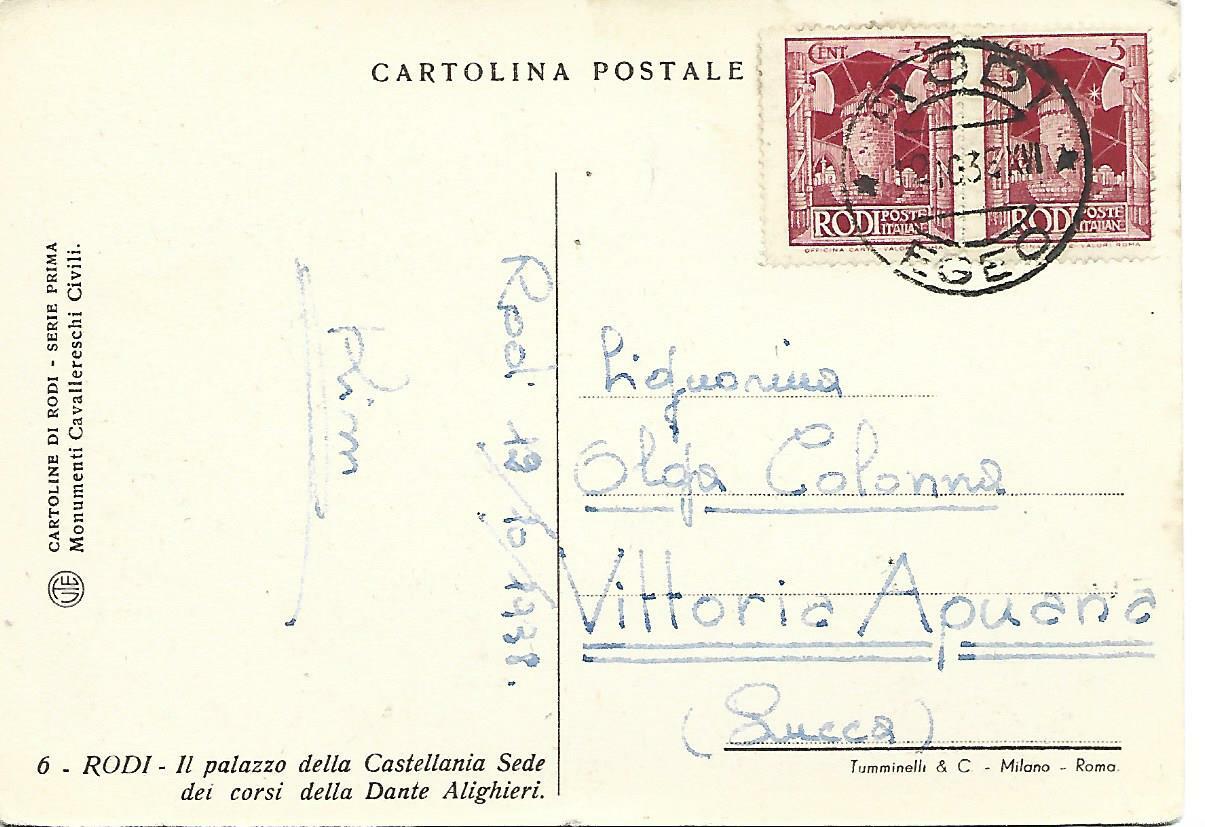 CARTOLINA POSTALE
CENT. 5
RODI POSTE ITALIANE
CENT. 5
RODI POSTE ITALIANE
RODI
EGEO
CARTOLINE DI RODI - SERIE PRIMA
Monumenti Cavallereschi Civili.
UTE
Rodi 12/10/1938.
Olga Colonna
Vittoria Apuana
(Lucca)
6 - RODI - Il palazzo della Castellania Sede
dei corsi della Dante Alighieri.
Tumminelli & C. - Milano - Roma.